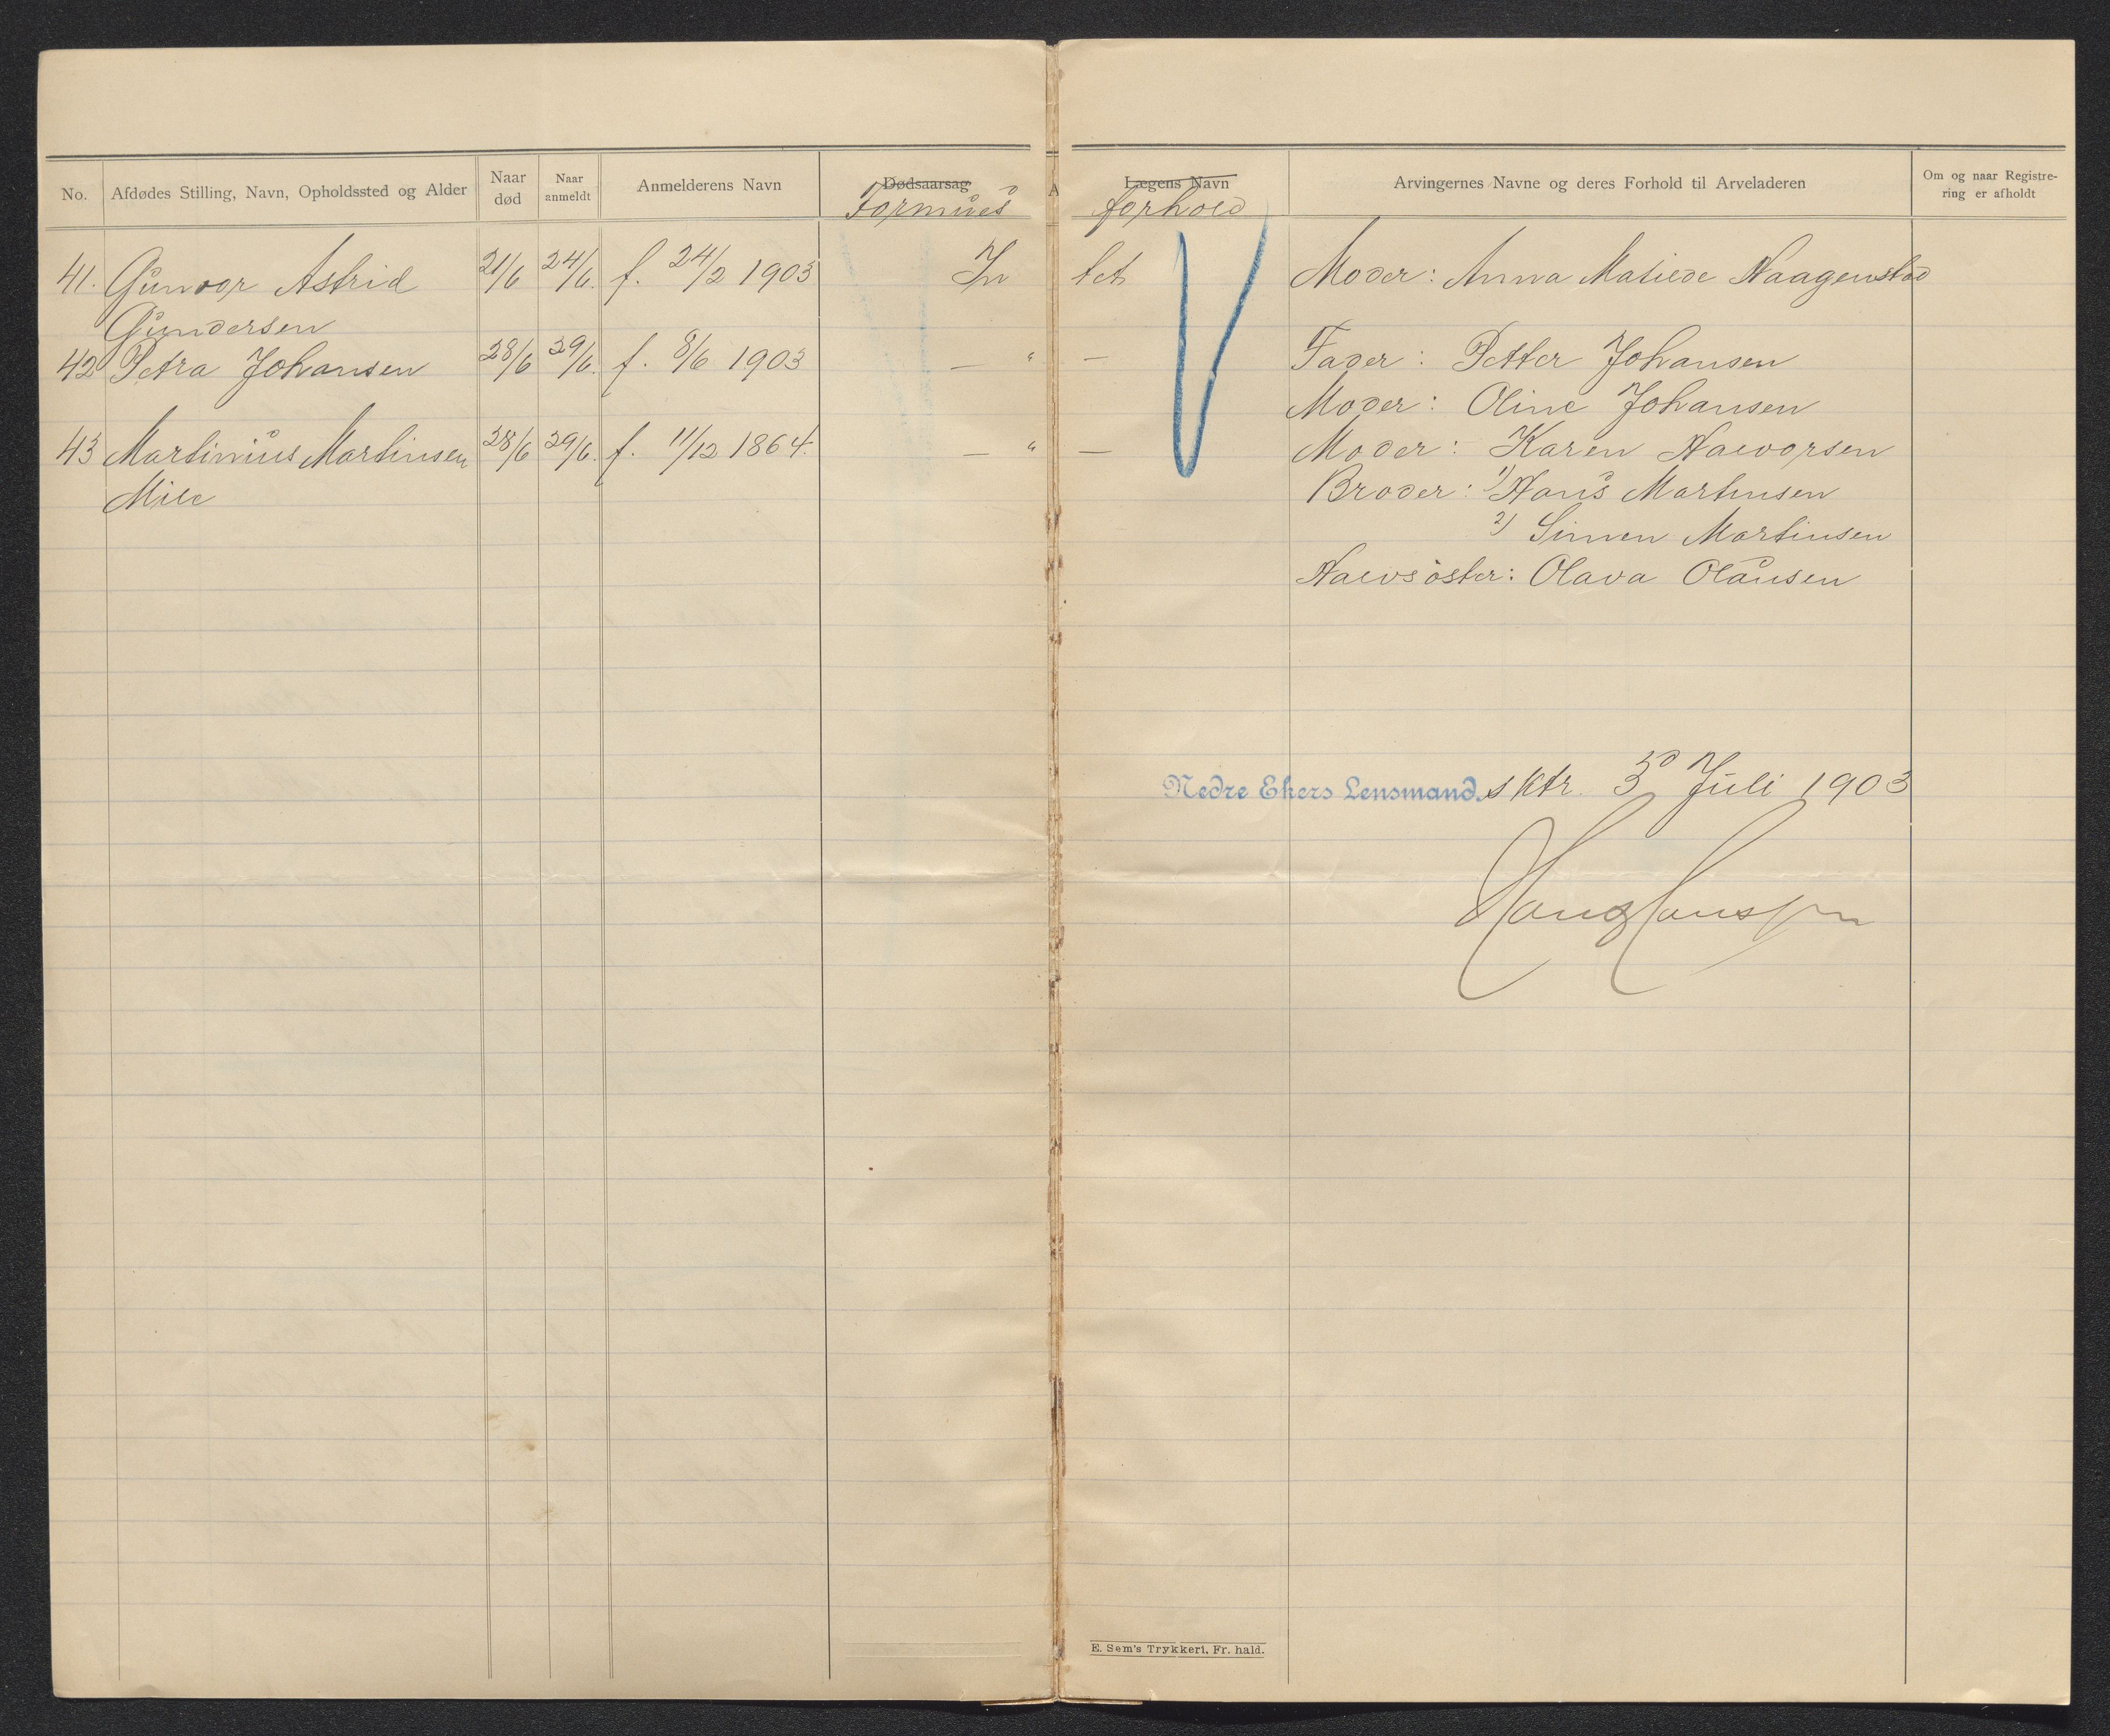 No. Afdødes Stilling, Navn, Opholdssted og Alder Naar død Naar anmeldt Anmelderens Navn Dødsaarsag A Lægens Navn Arvingernes Navne og deres Forhold til Arveladeren Om og naar Registrering er afholdt
Formues forhold
41. Gunvor Astrid 21/6 24/6. f. 24/2 1903 In tet Moder: Anna Matilde Haagenstad
Gundersen
42 Petra Johansen 28/6 29/6. f. 8/6 1903 — " — Fader: Petter Johansen
Moder: Oline Johansen
43 Martinius Martinsen 28/6 29/6. f. 11/12 1864. — " — Moder: Karen Halvorsen
Mile Broder: 1) Hans Martinsen
2) Simen Martinsen
Halvsøster: Olava Olausen
Nedre Ekers Lensmand.sktr. 3d Juli 1903
Hans Hanssen
E. Sem's Trykkeri. Fr. hald.